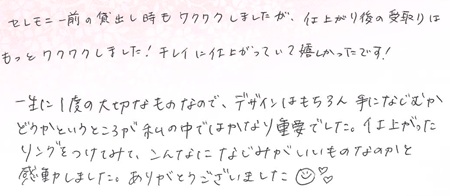 セレモニー前の貸出し時もワクワクしましたが、仕上がり後の受取りは
もっとワクワクしました！キレイに仕上がっていて嬉しかったです！
一生に1度の大切なものなので、デザインはもちろん手になじむか
どうかというところが私の中ではかなり重要でした。仕上がった
リングをつけてみて、こんなになじみがいいものなのかと
感動しました。ありがとうございました